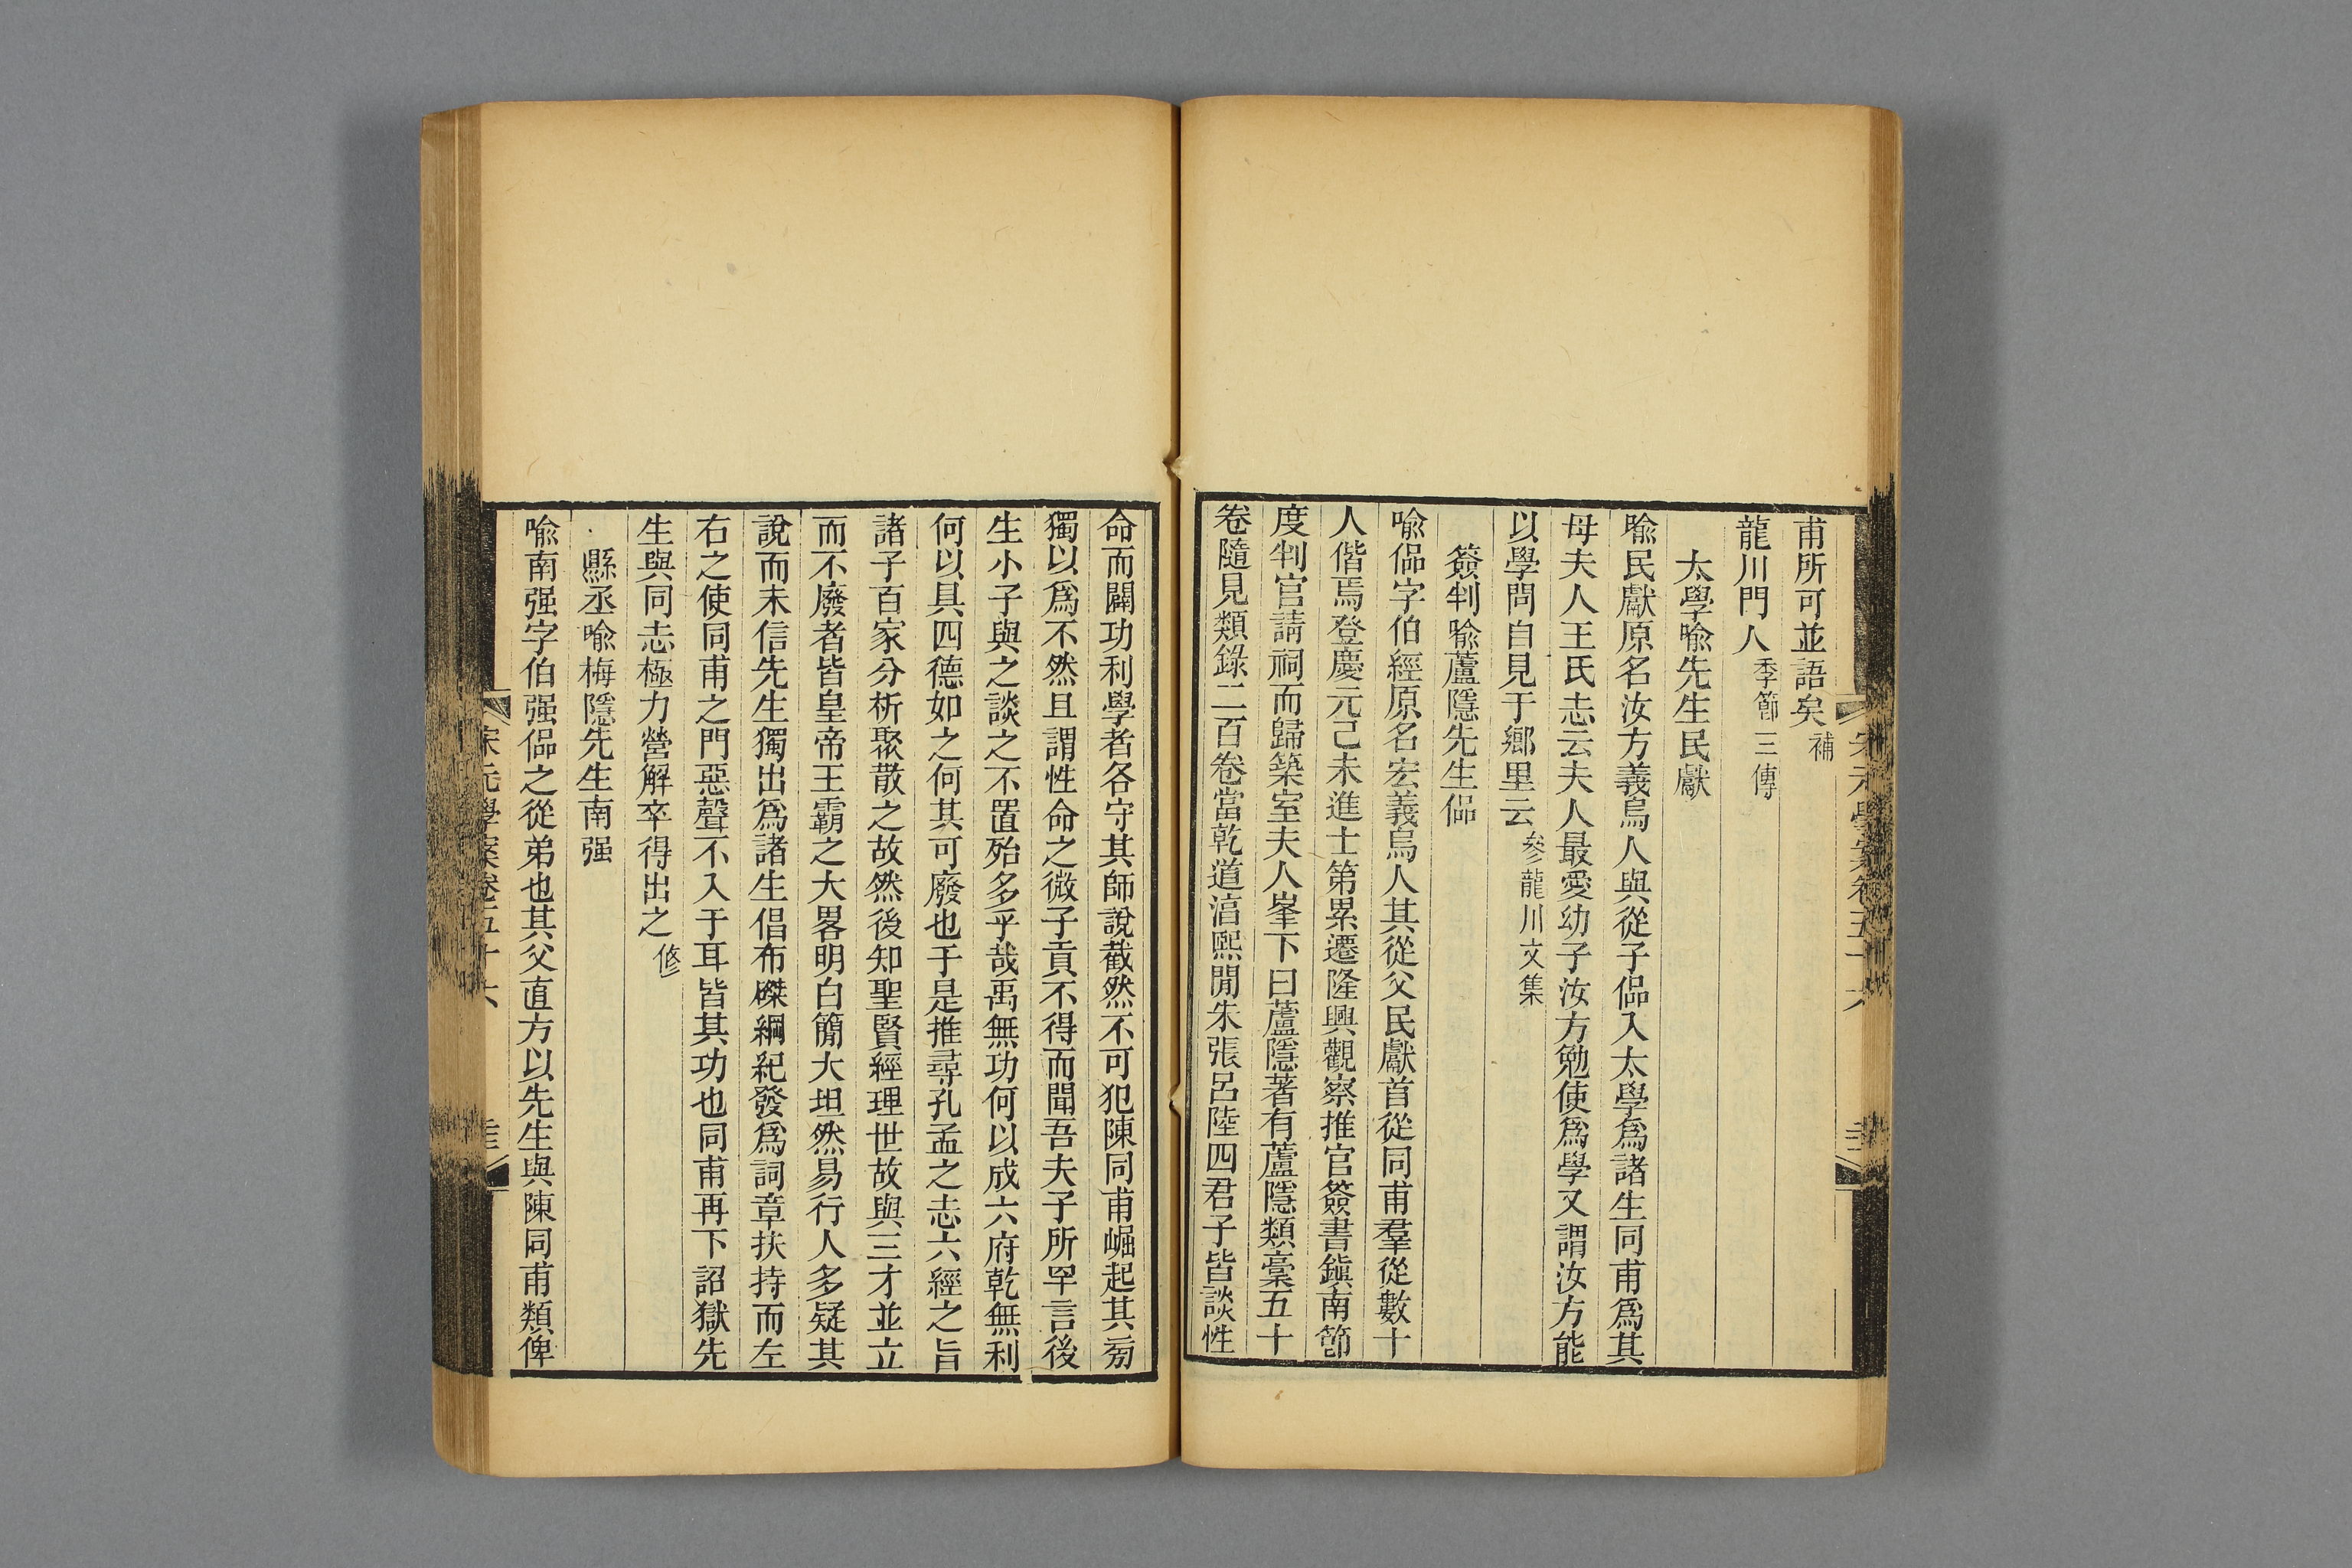 甫所可並語矣補
龍川門人季節三傳
太學喩先生民獻
喩民獻原名汝方義烏人與從子偘入太學爲諸生同甫爲其
母夫人王氏志云夫人最愛幼子汝方勉使爲學又謂汝方能
以學問自見于鄉里云參龍川文集
簽判喩蘆隱先生偘
喩偘字伯經原名宏義烏人其從父民獻首從同甫羣從數十
人偕焉登慶元己未進士第累遷隆興觀察推官簽書鎭南節
度判官請祠而歸築室夫人峯下曰蘆隱著有蘆隱類稾五十
卷隨見類錄二百卷當乾道淳熙閒朱張呂陸四君子皆談性
命而闢功利學者各守其師說截然不可犯陳同甫崛起其㫄
獨以爲不然且謂性命之微子貢不得而聞吾夫子所罕言後
生小子與之談之不置殆多乎哉禹無功何以成六府乾無利
何以具四德如之何其可廢也于是推尋孔孟之志六經之旨
諸子百家分析聚散之故然後知聖賢經理世故與三才並立
而不廢者皆皇帝王霸之大畧明白簡大坦然易行人多疑其
說而未信先生獨出爲諸生倡布磔綱紀發爲詞章扶持而左
右之使同甫之門惡聲不入于耳皆其功也同甫再下詔獄先
生與同志極力營解卒得出之修
縣丞喩梅隱先生南强
喩南强字伯强偘之從弟也其父直方以先生與陳同甫類俾
宋元學案卷五十六